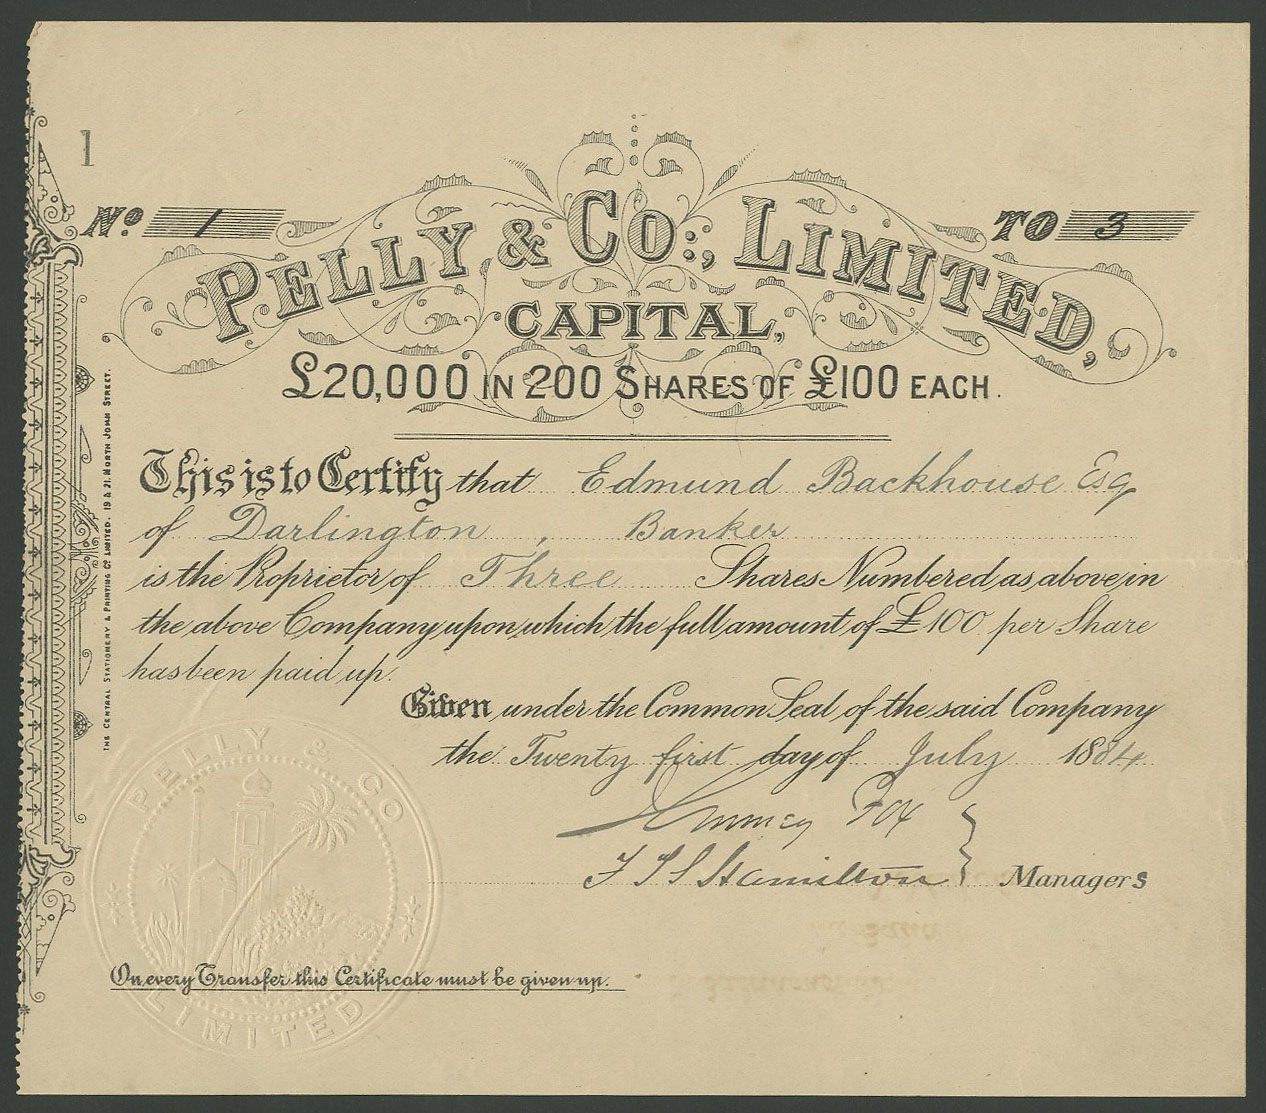 1
No. 1 TO 3
PELLY & Co:, LIMITED,
CAPITAL,
£20,000 IN 200 SHARES OF £100 EACH.
This is to Certify that Edmund Backhouse Esq
of Darlington, Banker
is the Proprietor of Three Shares Numbered as above in
the above Company upon which the full amount of £100 per Share
has been paid up.
Given under the Common Seal of the said Company
the Twenty first day of July 1884
Fox
F Hamilton Managers
PELLY & CO
LIMITED
On every Transfer this Certificate must be given up.
THE CENTRAL STATIONERY & PRINTING CO LIMITED. 19 & 21. NORTH JOHN STREET.